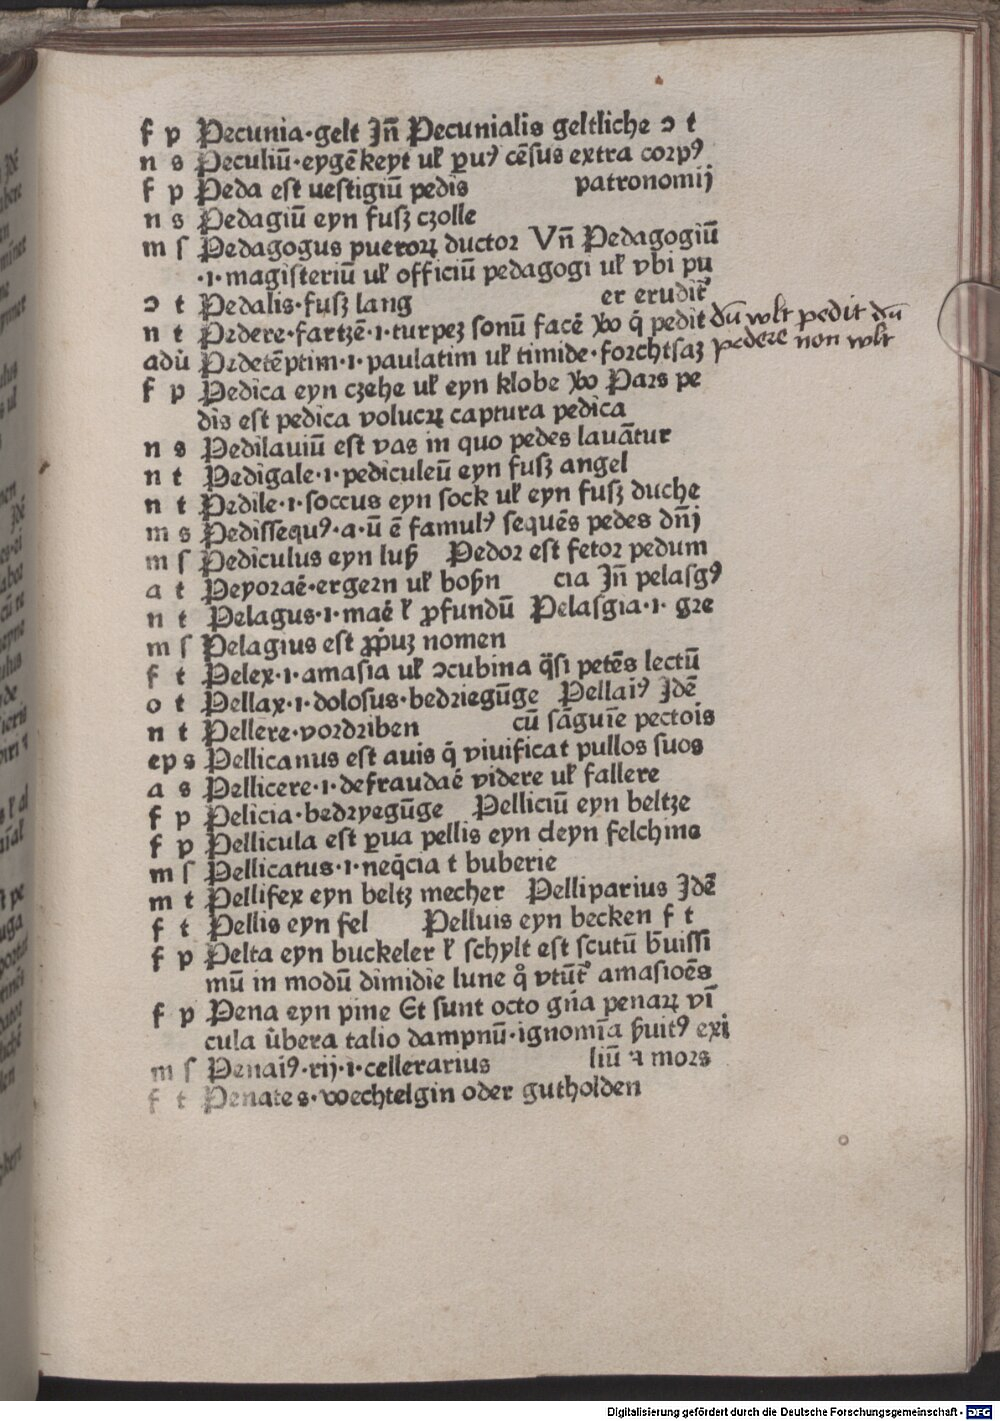 f p Pecunia·gelt Jn̄ Pecunialis geltliche ɔ t
n s Peculiū·eygēkeyt ul̛ ꝑuꝰ cēsus extra corpꝰ
f p Peda est uestigiū pedis patronomij
n s Pedagiū eyn fusʒ czolle
m ſ Pedagogus pueroꝝ ductor Vn̄ Pedagogiū
·i·magisteriū ul̛ officiū pedagogi ul̛ vbi pu
ɔ t Pedalis·fusʒ lang er erudit᷑
n t Pedere·fartzē·i·turpeʒ sonū facē vo q̄ pedit dū wlt pedit dū
adū Pedetēptim·i·paulatim ul̛ timide·forchtsaʒ pedere non wlt
f p Pedica eyn czehe ul̛ eyn klobe vo Pars pe
dis est pedica volucꝝ captura pedica
n s Pedilauiū est vas in quo pedes lauātur
n t Pedigale·i·pediculeū eyn fusʒ angel
n t Pedile·i·soccus eyn sock ul̛ eyn fusʒ duche
m s Pedissequꝰ·a·ū ē famulꝰ sequēs pedes dn̄j
m ſ Pediculus eyn luß Pedor est fetor pedum
a t Peyoraē·ergern ul̛ boßn cia Jn̄ pelasgꝰ
n t Pelagus·i·maē l̛ ꝓfundū Pelasgia·i· gre
m ſ Pelagius est ꝓp̄uʒ nomen
f t Pelex·i·amasia ul̛ ɔcubina q̄si petēs lectū
o t Pellax·i·dolosus·bedriegūge Pellaiꝰ Jdē
n t Pellere·vordriben cū sāguīe pectois
ep s Pellicanus est auis q̄ viuificat pullos suos
a s Pellicere·i·defraudaē videre ul̛ fallere
f p Pelicia·bedryegūge Pelliciū eyn beltze
f p Pellicula est ꝑua pellis eyn cleyn felchins
m ſ Pellicatus·i·neq̄cia t buberie
m t Pellifex eyn beltʒ mecher Pelliparius Jdē
f t Pellis eyn fel Pelluis eyn becken f t
f p Pelta eyn buckeler l̛ schylt est scutū b̄uissi
mū in modū dimidie lune q̊ vtūt᷑ amasioēs
f p Pena eyn pine Et sunt octo gn̄a penaꝝ vī
cula v̄bera talio dampnū·ignomīa ẜuitꝰ exi
m ſ Penaiꝰ·rij·i·cellerarius liū ⁊ mors
f t Penates·wechtelgin oder gutholden
Digitalisierung gefördert durch die Deutsche Forschungsgemeinschaft - DFG